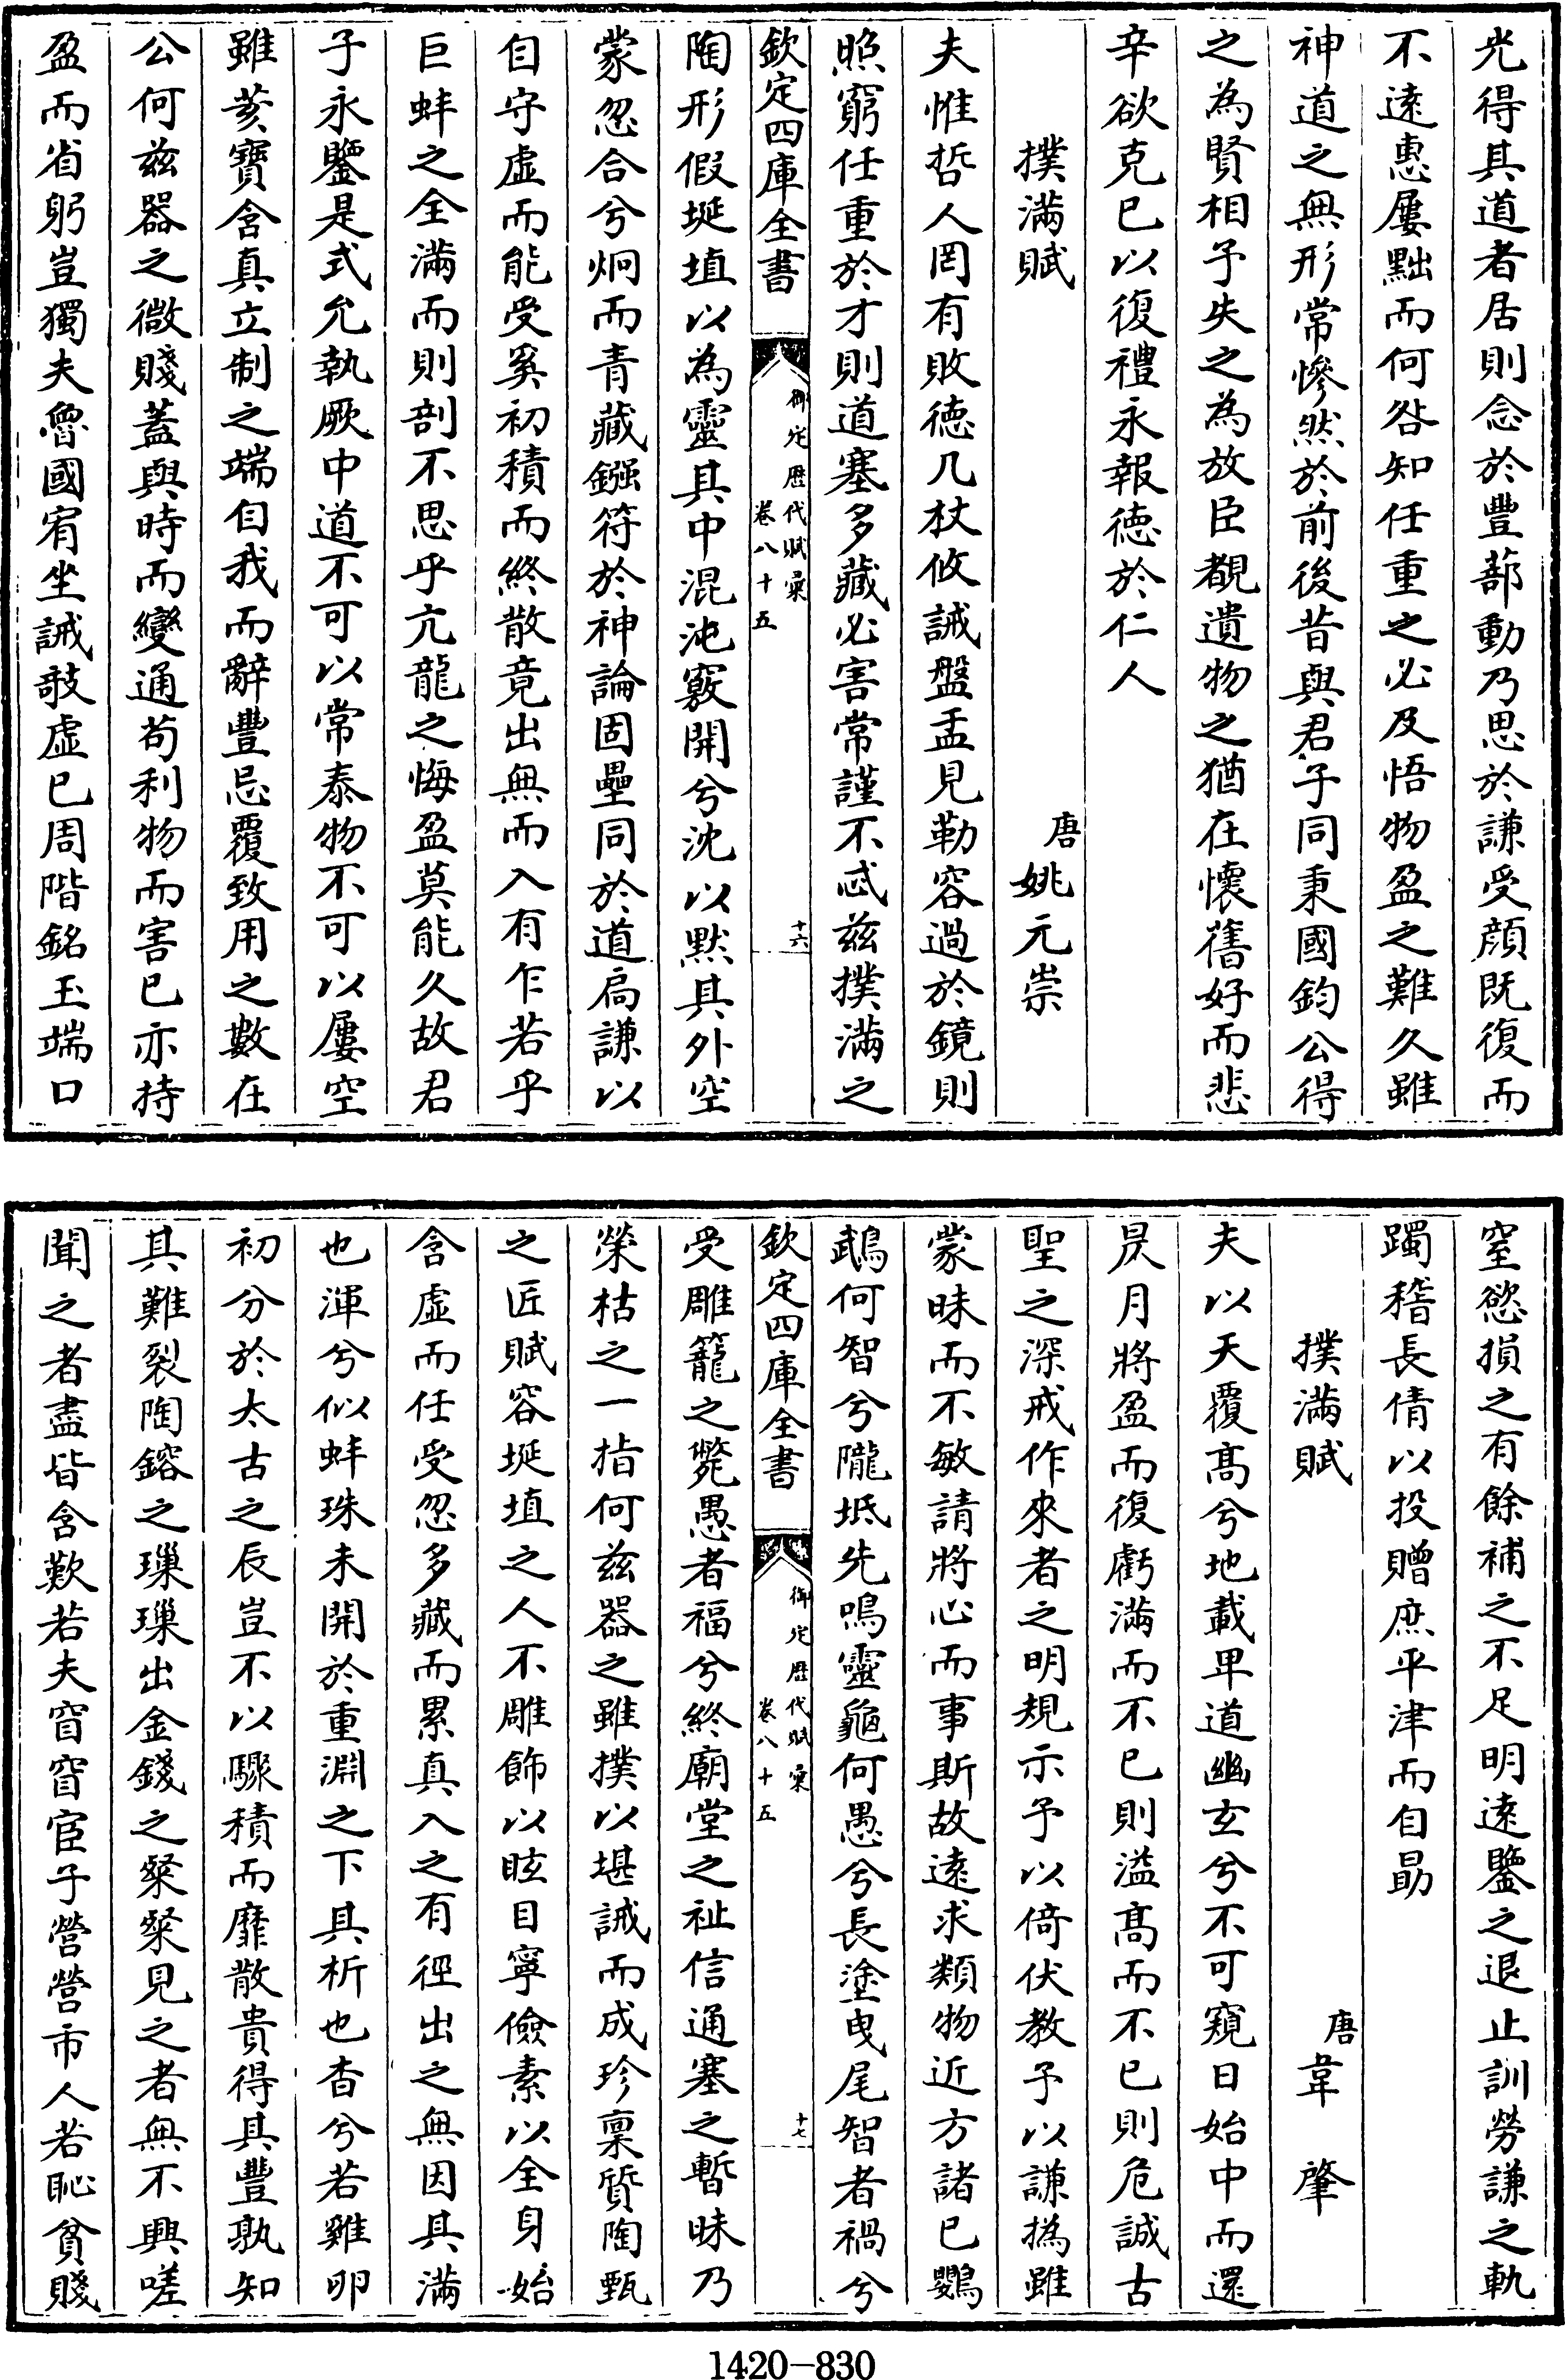 光得其道者居則念於豐蔀動乃思於謙受顔既復而
不遠惠屢黜而何咎知任重之必及悟物盈之難久雖
神道之無形常慘然於前後昔與君子同秉國鈞公得
之為賢相予失之為放臣覩遺物之猶在懷舊好而悲
辛欲克已以復禮永報徳於仁人
撲滿賦
唐姚元崇
夫惟哲人罔有敗徳几杖攸誡盤盂見勒容過於鏡則
照窮任重於才則道塞多藏必害常謹不忒兹撲滿之
欽定四庫全書
御定歴代賦彚
卷八十五
十六
陶形假埏埴以為靈其中混沌竅開兮沈以黙其外空
蒙忽合兮炯而青藏鏹符於神論固壘同於道扃謙以
自守虚而能受奚初積而終散竟出無而入有乍若乎
巨蚌之全滿而則剖不思乎亢龍之悔盈莫能久故君
子永鑒是式允執厥中道不可以常泰物不可以屢空
雖荄寶含真立制之端自我而辭豐忌覆致用之數在
公何兹器之微賤蓋與時而變通苟利物而害已亦持
盈而省躬豈獨夫魯國宥坐誡攲虚已周階銘玉端口
窒慾損之有餘補之不足明逺鑒之退止訓勞謙之軌
躅稽長倩以投贈庶平津而自勗
撲滿賦
唐韋肇
夫以天覆髙兮地載卑道幽玄兮不可窺日始中而還
昃月將盈而復虧滿而不已則溢髙而不已則危誠古
聖之深戒作來者之明規示予以倚伏教予以謙撝雖
蒙昧而不敏請將心而事斯故遠求類物近方諸已鸚
鵡何智兮隴坻先鳴靈龜何愚兮長塗曳尾智者禍兮
欽定四庫全書
御定歴代賦彚
卷八十五
十七
受雕籠之斃愚者福兮終廟堂之祉信通塞之暫昧乃
榮枯之一指何兹器之雖撲以堪誡而成珍稟質陶甄
之匠賦容埏埴之人不雕飾以眩目寧儉素以全身始
含虚而任受忽多藏而累真入之有徑出之無因其滿
也渾兮似蚌珠未開於重淵之下其析也杳兮若雞卵
初分於太古之辰豈不以驟積而靡散貴得其豐孰知
其難裂陶鎔之璅璅出金錢之粲粲見之者無不興嗟
聞之者盡皆含歎若夫窅窅宦子營營市人若恥貧賤
1420-830